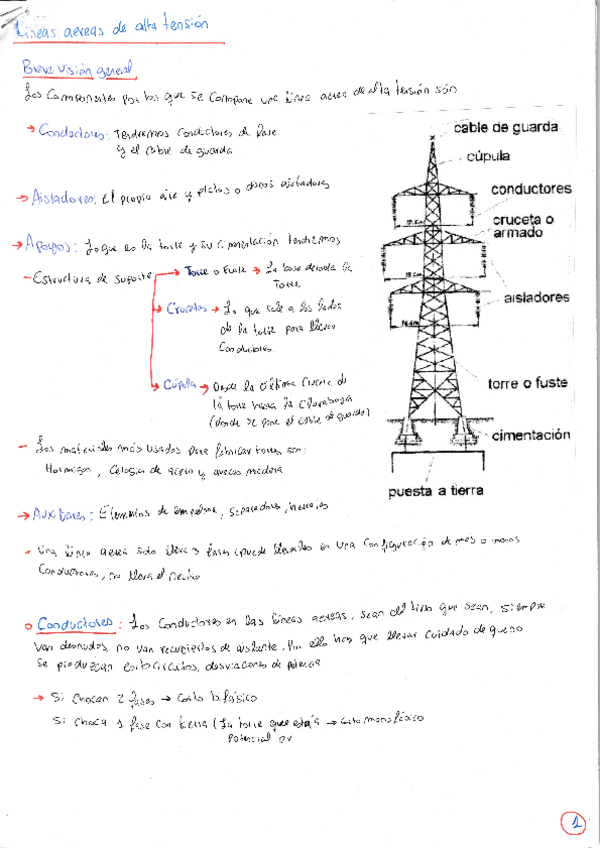 Líneas aereas de alta tensión
Breve visión general
Los componentes por los que se compone una línea aerea de alta tensión son
→ Conductores: Tendremos conductores de fase
y el cable de guarda
→ Aisladores: El propio aire y platos o discos aisladores
→ Apoyos: Lo que es la torre y su cimentación tendremos
- Estructura de soporte → Torre o Fuste → La base de toda la
Torre
Crucetas → Lo que sale a los lados
de la torre para llevar
conductores
Cúpula → Desde la última cruceta de
la torre hasta la
(donde se pone el cable de guarda)
- Los materiales más usados para fabricar torres son:
Hormigón, Celosía de acero y madera
→ Auxiliares: Elementos de empalme, separadores, herrajes
- Una línea aerea solo lleva 3 fases (puede llevarlas en una configuración de mas o menos
conductores, no lleva el neutro
o Conductores: Los conductores en las líneas aereas, sean del tipo que sean, siempre
van desnudos, no van recubiertos de aislante. Por ello hay que llevar cuidado de que no
se produzcan cortocircuitos, desviaciones de potencia
→ Si chocan 2 fases → Corto bifásico
Si choca 1 fase con tierra (La torre que está a → corto monofásico
Potencial 0V
cable de guarda
cúpula
conductores
cruceta o
armado
aisladores
torre o fuste
cimentación
puesta a tierra
1